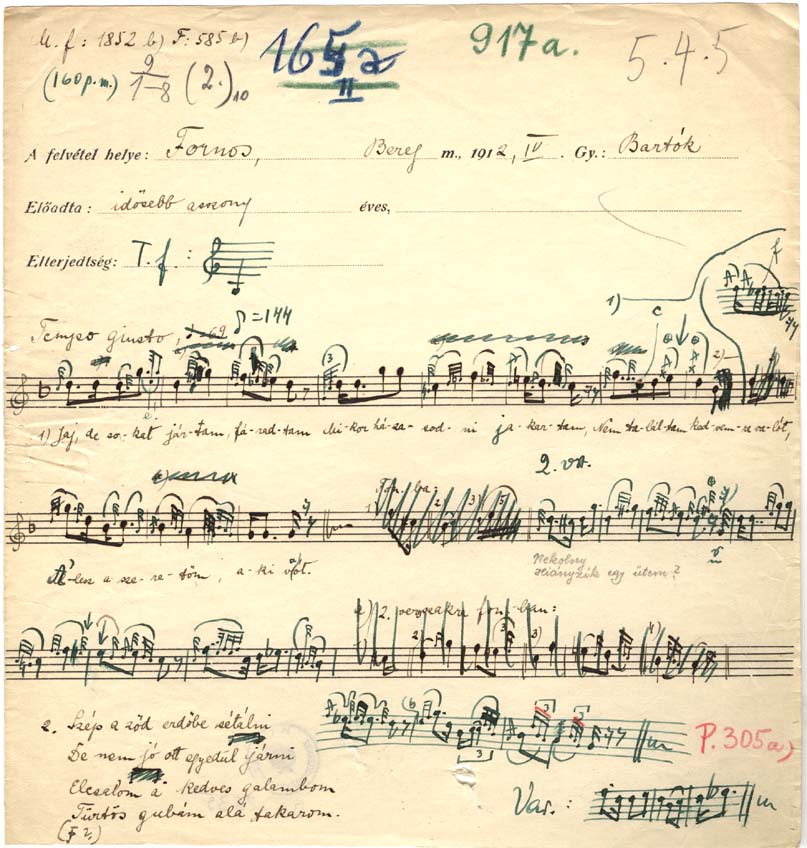 M. f: 1852 b) F: 585 b)
165 a
II
917a.
5.4.5
(160 p.m.) 9/1-8 (2.) 10
A felvétel helye: Fornos, Bereg m., 1912, IV. Gy.: Bartók
Előadta: idősebb asszony éves,
Elterjedtség: T. f.:
1)
Tempo giusto, ♪=144
c
2)
1) Jaj, de so-kat jár-tam, fá-rad-tam Mi-kor há-za-sod-ni ja-kar-tam, Nem ta-lál-tam ked-vem-re va-lót,
2. va.
-lesz a sze-re-tőm, a-ki vót.
Nekolny
hiányzik egy ütem?
2. Szép a zöd erdőbe sétálni
De nem jó ott egyedül járni
Elcsalom a kedves galambom
Fürtös gubám alá takarom.
P. 305a)
Var.: